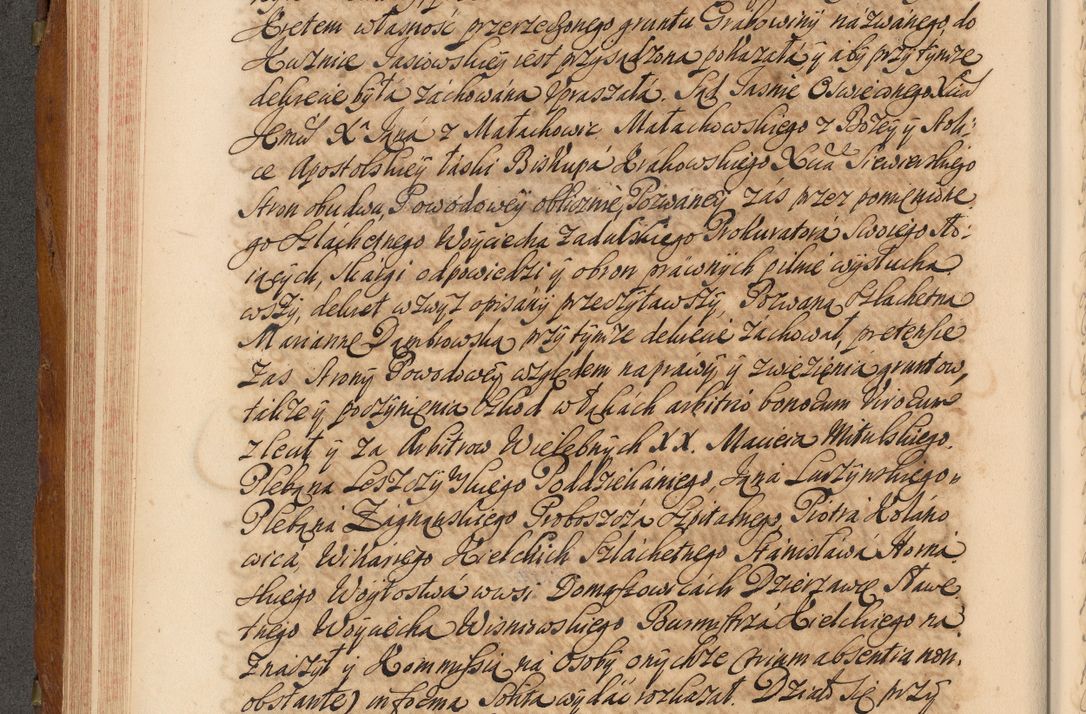 Kretem własnosc przerzeczonego gruntu Grabowiny názwánego, do
Kuznice Jasiowskiey iest przysądzona pokázałá y aby przy tymze
dekrecie była záchowána upraszała. Sąd Jasnie Oswieconego Xcia
Jmci Xa Jana z Małachowic Małachowskiego z Bozey y Stoli-
ce Apostolskiey łaski Biskupá Krákowskiego Xcia Siewierskiego
Stron obudwu, Powodowey oblicznie, Pozwáney zás przez pomienione
go Szláchetnego Woyciecha Zadulskiego Prokuratorá Swoiego Sto-
iących, skargi odpowiedzi y obron práwnych pilnie wysłucha
wszy, dekret wzwyz opisány przeczytawszy, Pozwaną Szláchetną
Mariannę Dąmbrowską przy tymze dekrecie záchował, pretensie
Zas Strony Powodowey względem naprawy y zwęzięnia gruntow,
tákze y poczynienia szkod w łąkách arbitrio bonorum Virorum
zlecił y za Arbitrow Wielebnych XX. Macieia Mitulskiego
Plebana Leszczynskiego Poddziekániego, Jana Lurzynskiego
Plebaná Zagnanskiego Proboszcza Szpitalnego, Piotrá Koláno
wicá, Wikariego Kielckich Szláchetnego Stánisłáwá Horni
skiego Woytostwá wwsi Domaszowicách Dzierzawcę, Sławe
tnego Woyciecha Wisniowskiego Burmistrzá Kielckiego na
znaczył y Kommissią ná osoby onychze (trium absentia non
obstante) in forma solita wydáć roskazał. Działo się przy